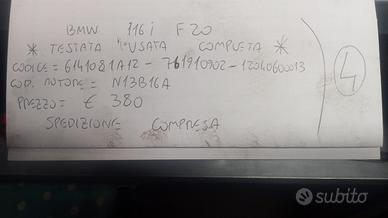 BMW 116i F20
* TESTATA USATA COMPLETA *
CODICE = 6141081A12 - 761910902 - 12040600013
COD. MOTORE = N13B16A
PREZZO = € 380
SPEDIZIONE COMPRESA
4
subito